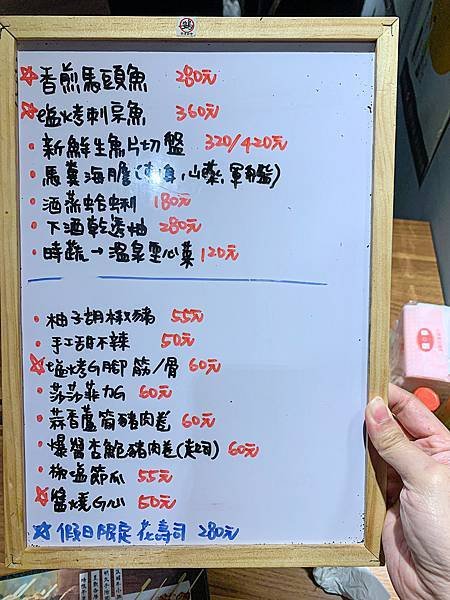 ☆香煎馬頭魚 280元
☆塩烤剌皮魚 360元
・新鮮生魚片切盤 320/420元
・馬糞海膽(刺身,山藥,軍艦)
・酒蒸蛤蜊 180元
・下酒乾透抽 280元
・時蔬→溫泉空心菜 120元
・柚子胡椒豬 55元
・手工甜不辣 50元
☆塩烤G腳筋/骨 60元
・莎莎菲力G 60元
・蒜香蘆筍豬肉卷 60元
・爆醬杏鮑豬肉卷(起司) 60元
・椒塩節瓜 55元
☆醬燒G心 50元
☆假日限定 花壽司 280元